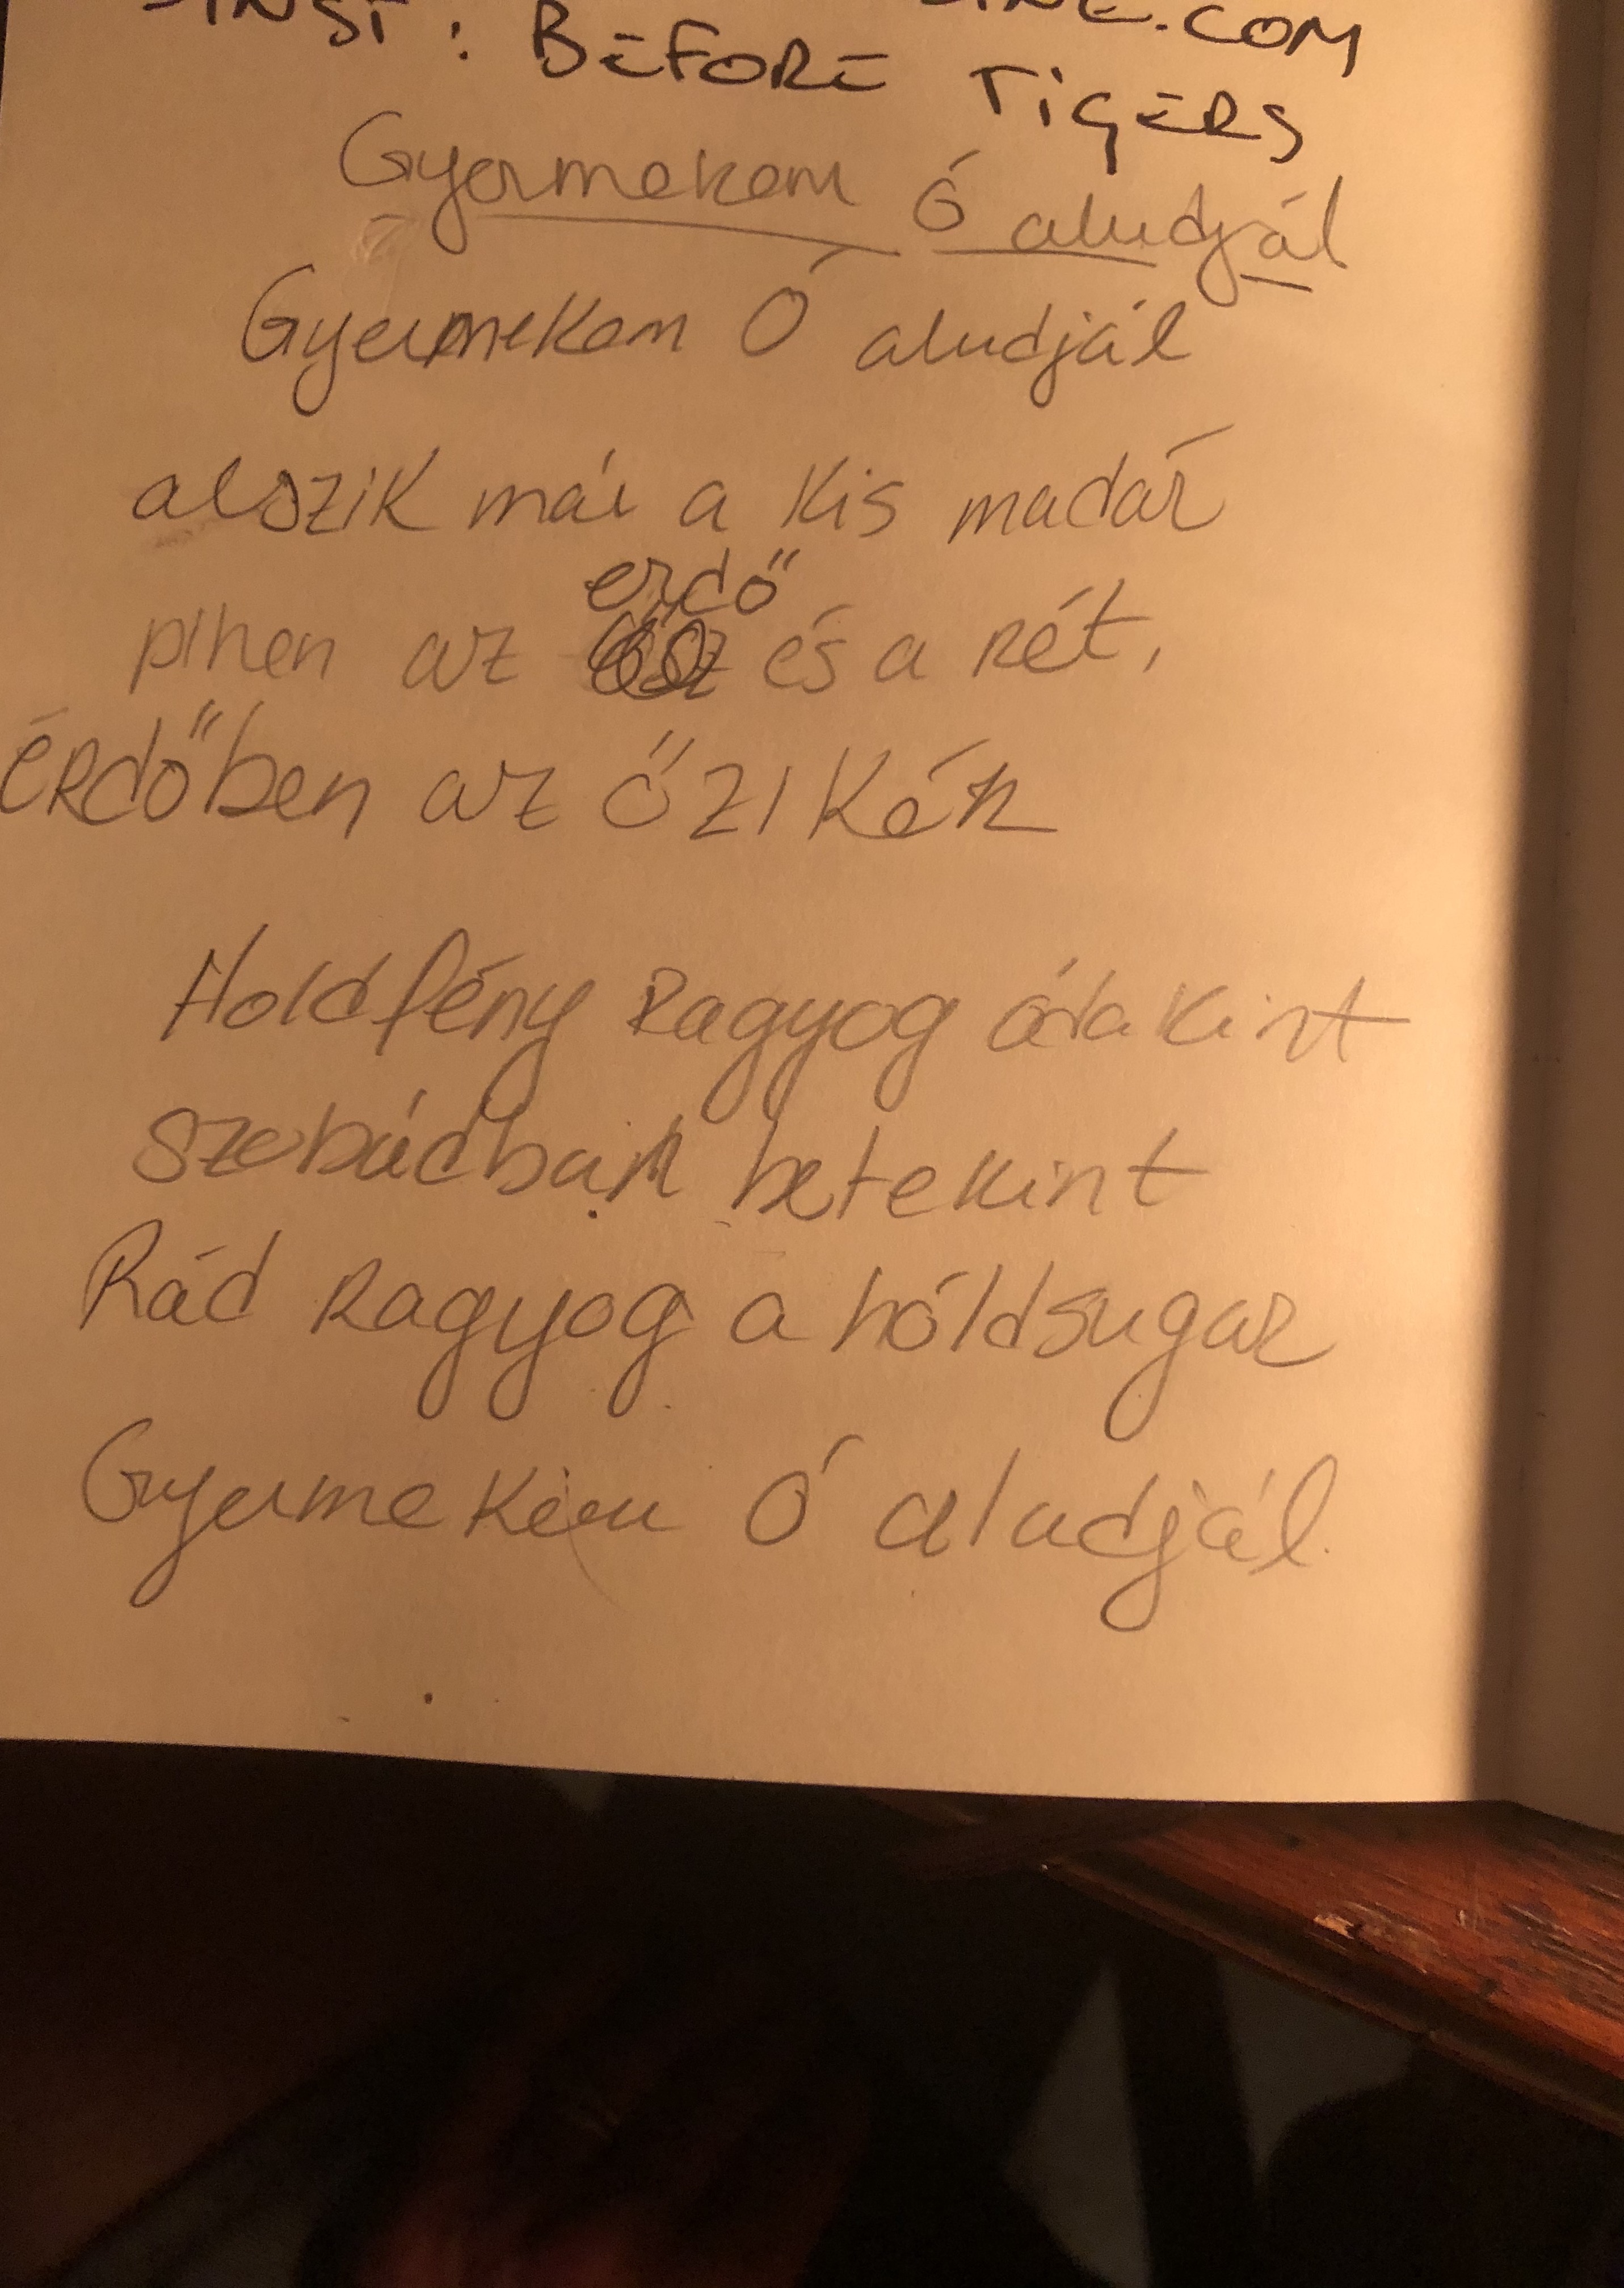 INST: BEFORE TIGERS
Gyermekem Ó aludjál
Gyermekem Ó aludjál
alszik már a kis madár
pihen az erdő és a rét,
érdőben az őzikék
Holdfény Ragyog ódakint
szobádban betekint
Rád Ragyog a hóldsugar
Gyermekem Ó aludjál.